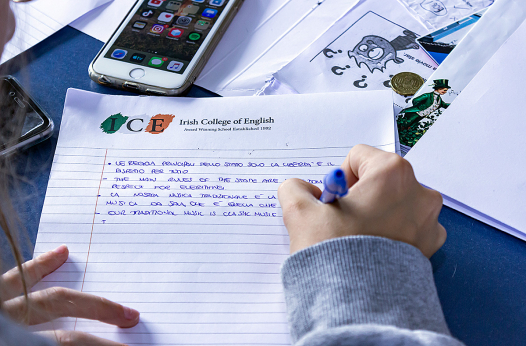 ICE
Irish College of English
Award Winning School Established 1992
• LE REGOLA PRINCIPALI DELLO STATO SONO LA LIBERTA' E IL
RISPETTO PER TUTTO
- THE MAIN RULES OF THE STATE ARE
RESPECT FOR EVERYTHING
- LA NOSTRA MUSICA TRADIZIONALE E' LA
MUSICA DA
- OUR TRADITIONAL MUSIC IS CLASSIC MUSIC